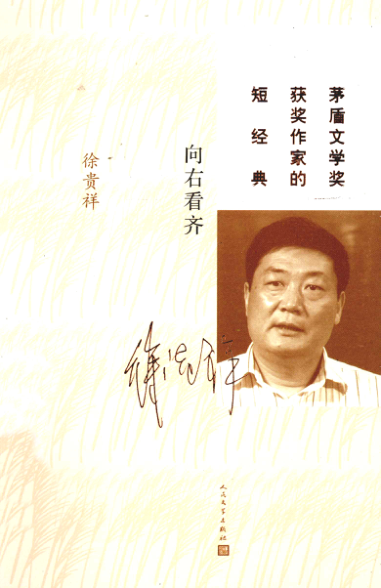 茅盾文学奖
获奖作家的
短经典
向右看齐
徐贵祥
徐贵祥
人民文学出版社